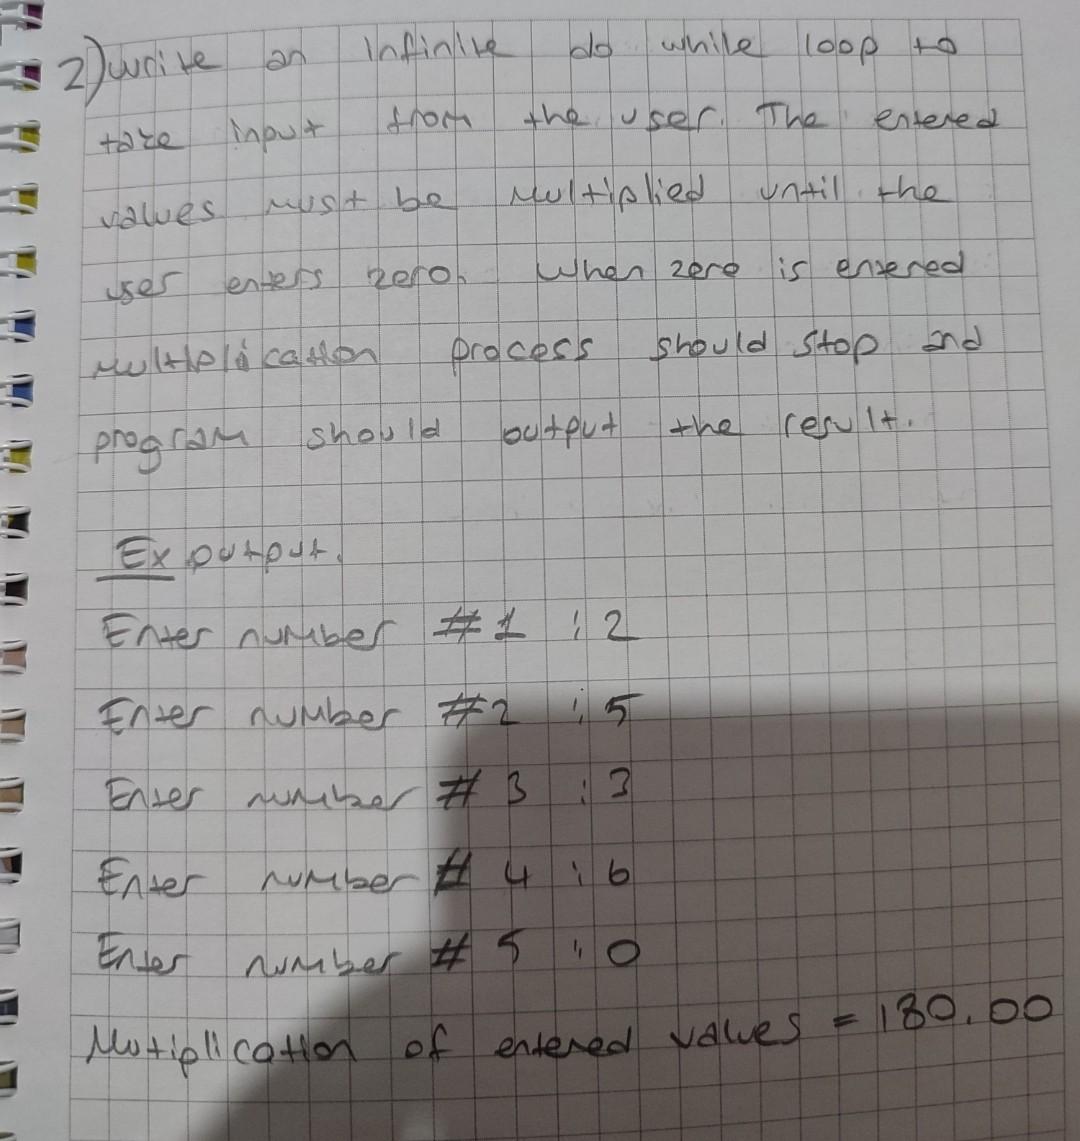 2) Write an infinite do while loop to
take input from the user. The entered
values must be multiplied until the
user enters zero. When zero is entered
multiplication process should stop and
program should output the result.
Ex output.
Enter number #1 : 2
Enter number #2 : 5
Enter number #3 : 3
Enter number #4 : 6
Enter number #5 : 0
Mutiplication of entered values = 180.00